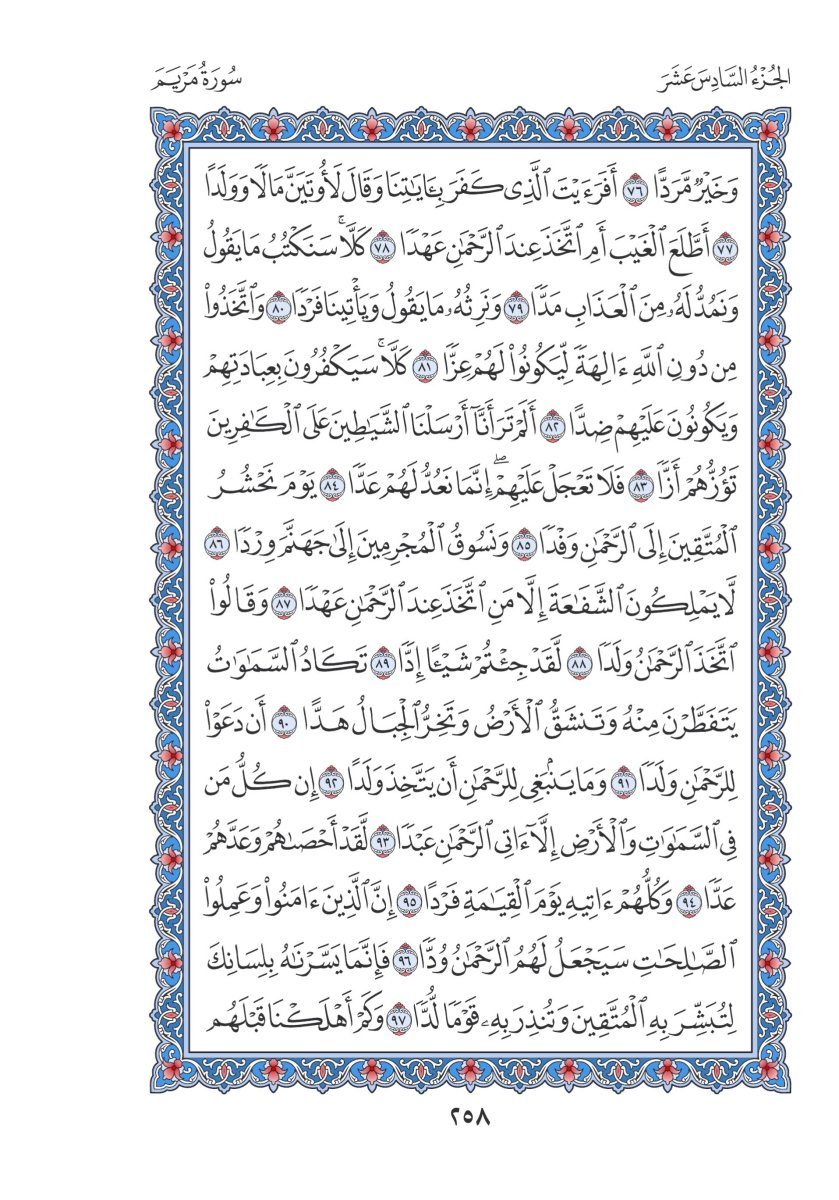 الجُزْءُ السَّادِسَ عَشَرَ
سُورَةُ مَرْيَمَ
وَخَيْرٌ مَّرَدًّا ٧٦ أَفَرَءَيْتَ ٱلَّذِى كَفَرَ بِـَٔايَٰتِنَا وَقَالَ لَأُوتَيَنَّ مَالًا وَوَلَدًا
٧٧ أَطَّلَعَ ٱلْغَيْبَ أَمِ ٱتَّخَذَ عِندَ ٱلرَّحْمَٰنِ عَهْدًا ٧٨ كَلَّا ۚ سَنَكْتُبُ مَا يَقُولُ
وَنَمُدُّ لَهُۥ مِنَ ٱلْعَذَابِ مَدًّا ٧٩ وَنَرِثُهُۥ مَا يَقُولُ وَيَأْتِينَا فَرْدًا ٨٠ وَٱتَّخَذُوا۟
مِن دُونِ ٱللَّهِ ءَالِهَةً لِّيَكُونُوا۟ لَهُمْ عِزًّا ٨١ كَلَّا ۚ سَيَكْفُرُونَ بِعِبَادَتِهِمْ
وَيَكُونُونَ عَلَيْهِمْ ضِدًّا ٨٢ أَلَمْ تَرَ أَنَّآ أَرْسَلْنَا ٱلشَّيَٰطِينَ عَلَى ٱلْكَٰفِرِينَ
تَؤُزُّهُمْ أَزًّا ٨٣ فَلَا تَعْجَلْ عَلَيْهِمْ ۖ إِنَّمَا نَعُدُّ لَهُمْ عَدًّا ٨٤ يَوْمَ نَحْشُرُ
ٱلْمُتَّقِينَ إِلَى ٱلرَّحْمَٰنِ وَفْدًا ٨٥ وَنَسُوقُ ٱلْمُجْرِمِينَ إِلَىٰ جَهَنَّمَ وِرْدًا ٨٦
لَّا يَمْلِكُونَ ٱلشَّفَٰعَةَ إِلَّا مَنِ ٱتَّخَذَ عِندَ ٱلرَّحْمَٰنِ عَهْدًا ٨٧ وَقَالُوا۟
ٱتَّخَذَ ٱلرَّحْمَٰنُ وَلَدًا ٨٨ لَّقَدْ جِئْتُمْ شَيْـًٔا إِدًّا ٨٩ تَكَادُ ٱلسَّمَٰوَٰتُ
يَتَفَطَّرْنَ مِنْهُ وَتَنشَقُّ ٱلْأَرْضُ وَتَخِرُّ ٱلْجِبَالُ هَدًّا ٩٠ أَن دَعَوْا۟
لِلرَّحْمَٰنِ وَلَدًا ٩١ وَمَا يَنۢبَغِى لِلرَّحْمَٰنِ أَن يَتَّخِذَ وَلَدًا ٩٢ إِن كُلُّ مَن
فِى ٱلسَّمَٰوَٰتِ وَٱلْأَرْضِ إِلَّآ ءَاتِى ٱلرَّحْمَٰنِ عَبْدًا ٩٣ لَّقَدْ أَحْصَىٰهُمْ وَعَدَّهُمْ
عَدًّا ٩٤ وَكُلُّهُمْ ءَاتِيهِ يَوْمَ ٱلْقِيَٰمَةِ فَرْدًا ٩٥ إِنَّ ٱلَّذِينَ ءَامَنُوا۟ وَعَمِلُوا۟
ٱلصَّٰلِحَٰتِ سَيَجْعَلُ لَهُمُ ٱلرَّحْمَٰنُ وُدًّا ٩٦ فَإِنَّمَا يَسَّرْنَٰهُ بِلِسَانِكَ
لِتُبَشِّرَ بِهِ ٱلْمُتَّقِينَ وَتُنذِرَ بِهِۦ قَوْمًا لُّدًّا ٩٧ وَكَمْ أَهْلَكْنَا قَبْلَهُم
٢٥٨